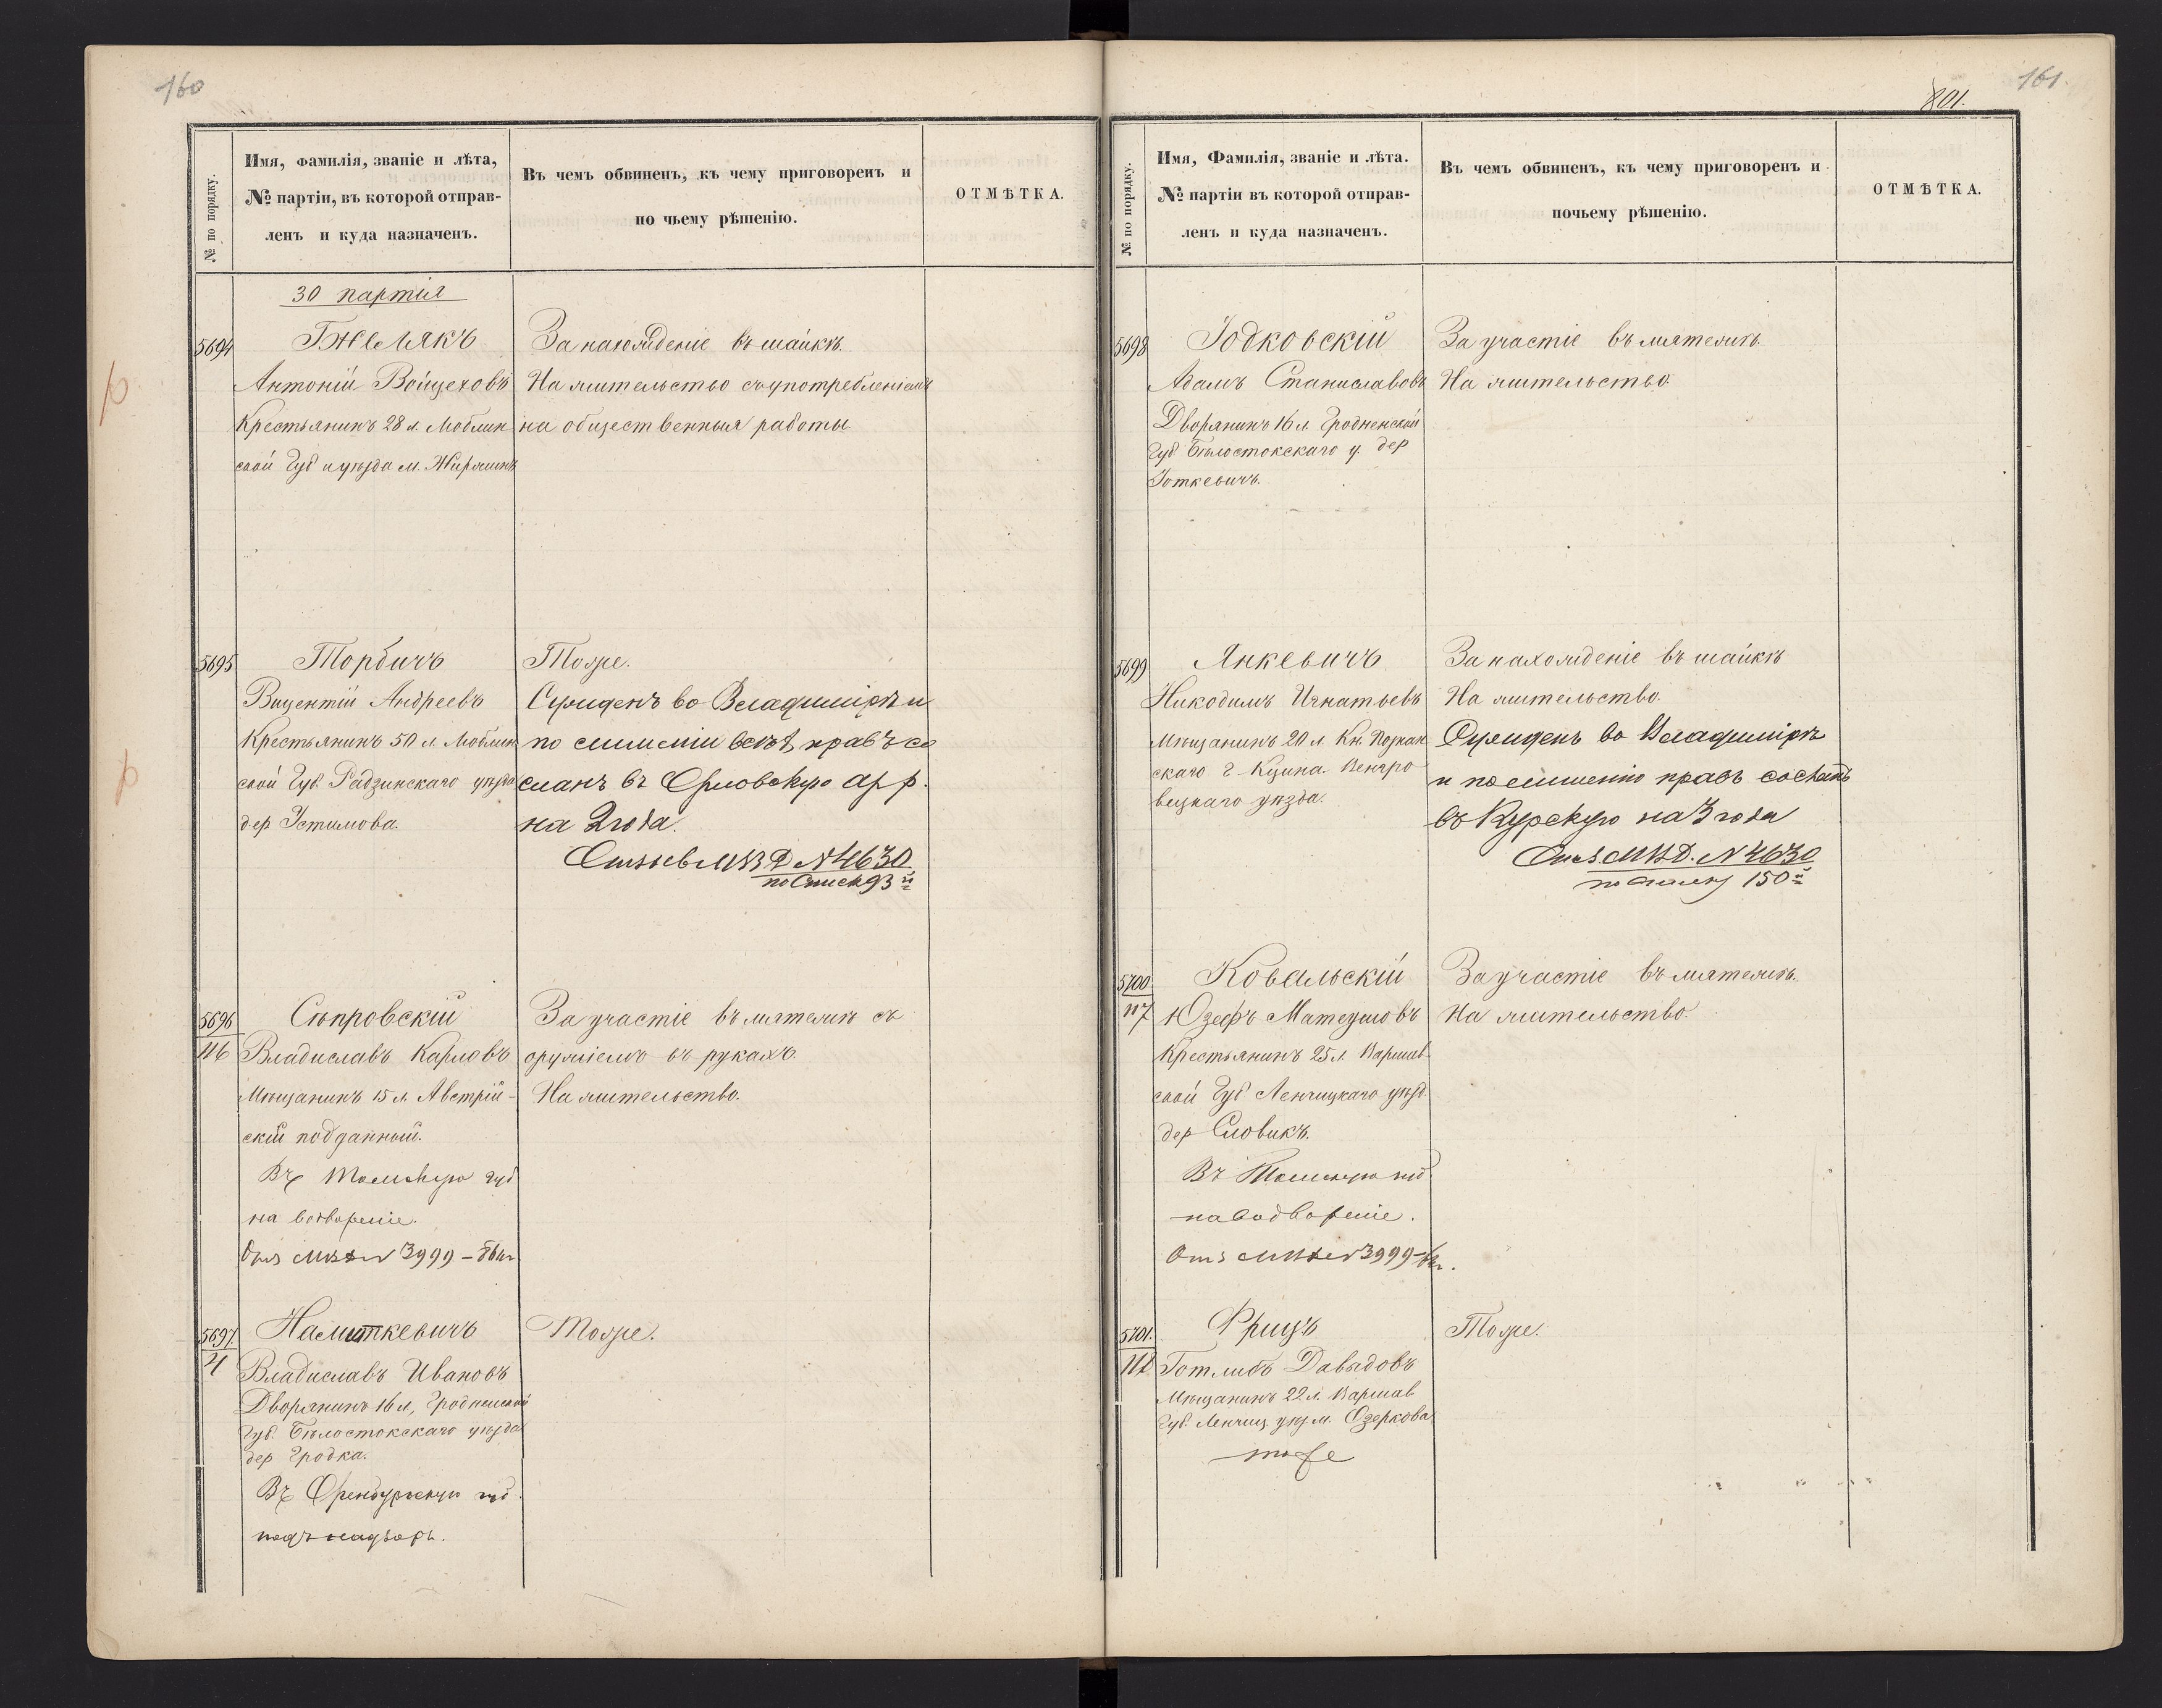 160
№ по порядку.
Имя, фамилія, званіе и лѣта,
№ партіи, въ которой отправ-
ленъ и куда назначенъ.
Въ чемъ обвиненъ, къ чему приговоренъ и
по чьему рѣшенію.
ОТМѢТКА.
30 партія
5694
Гжелякъ
Антоній Войцеховъ
Крестьянинъ 28 л. Люблин
ской Губ и уѣзда м.
За нахожденіе въ шайкѣ.
На жительство съ употребленіемъ
на общественныя работы.
5695
Торбичъ
Вицентій Андреевъ
Крестьянинъ 50 л. Люблин
ской Губ. Радзинскаго уѣзда
дер Устимова.
Тоже.
Сужденъ во Владимірѣ и
по лишеніи всѣхъ правъ со
сланъ въ Орловскую ар р.
на 2 года.
МВД № 4630
по Списк 93й
5696
116
Сѣпровскій
Владиславъ Карловъ
Мѣщанинъ 15 л. Австрій-
скій подданный.
Въ Томскую губ
на водвореніе.
Отз МВД № 3999 –
За участіе въ мятежѣ съ
оружіемъ въ рукахъ.
На жительство.
5697.
4
Намиткевичъ
Владиславъ Ивановъ
Дворянинъ 16 л, Гродненской
Губ. Бѣлостокскаго уѣзда
дер Гродка.
Въ Оренбургскую губ.
подъ надзоръ.
Тоже.
161.
801.
№ по порядку.
Имя, Фамилія, званіе и лѣта.
№ партіи въ которой отправ-
ленъ и куда назначенъ.
Въ чемъ обвиненъ, къ чему приговоренъ и
почьему рѣшенію.
ОТМѢТКА.
5698
Іодковскій
Адамъ Станиславовъ
Дворянинъ 16 л Гродненской
Губ Бѣлостокскаго у. дер
Іоткевичъ.
За участіе въ мятежѣ.
На жительство.
5699
Янкевичъ
Никодимъ Игнатьевъ
Мѣщанинъ 20 л. Кн. Познан
скаго г. Кцина. Венгро
вецкаго уѣзда.
За нахожденіе въ шайкѣ
На жительство.
Сужденъ во Владимірѣ
и по лишенію правъ сосланъ
въ Курскую на 3 года
МВД. № 4630
по списку 150й
5700.
117
Ковальскій
Юзефъ Матеушовъ
Крестьянинъ 25 л. Варшав
ской Губ Ленчицкаго уѣзд.
дер Словикъ.
Въ Томскую губ
на водвореніе.
Отз МВД № 3999 –
За участіе въ мятежѣ.
На жительство.
5701.
118
Фрицъ
Готлибъ Давыдовъ
Мѣщанинъ 22 л. Варшав
Губ. Ленчиц уѣз м. Озеркова
тоже
Тоже.